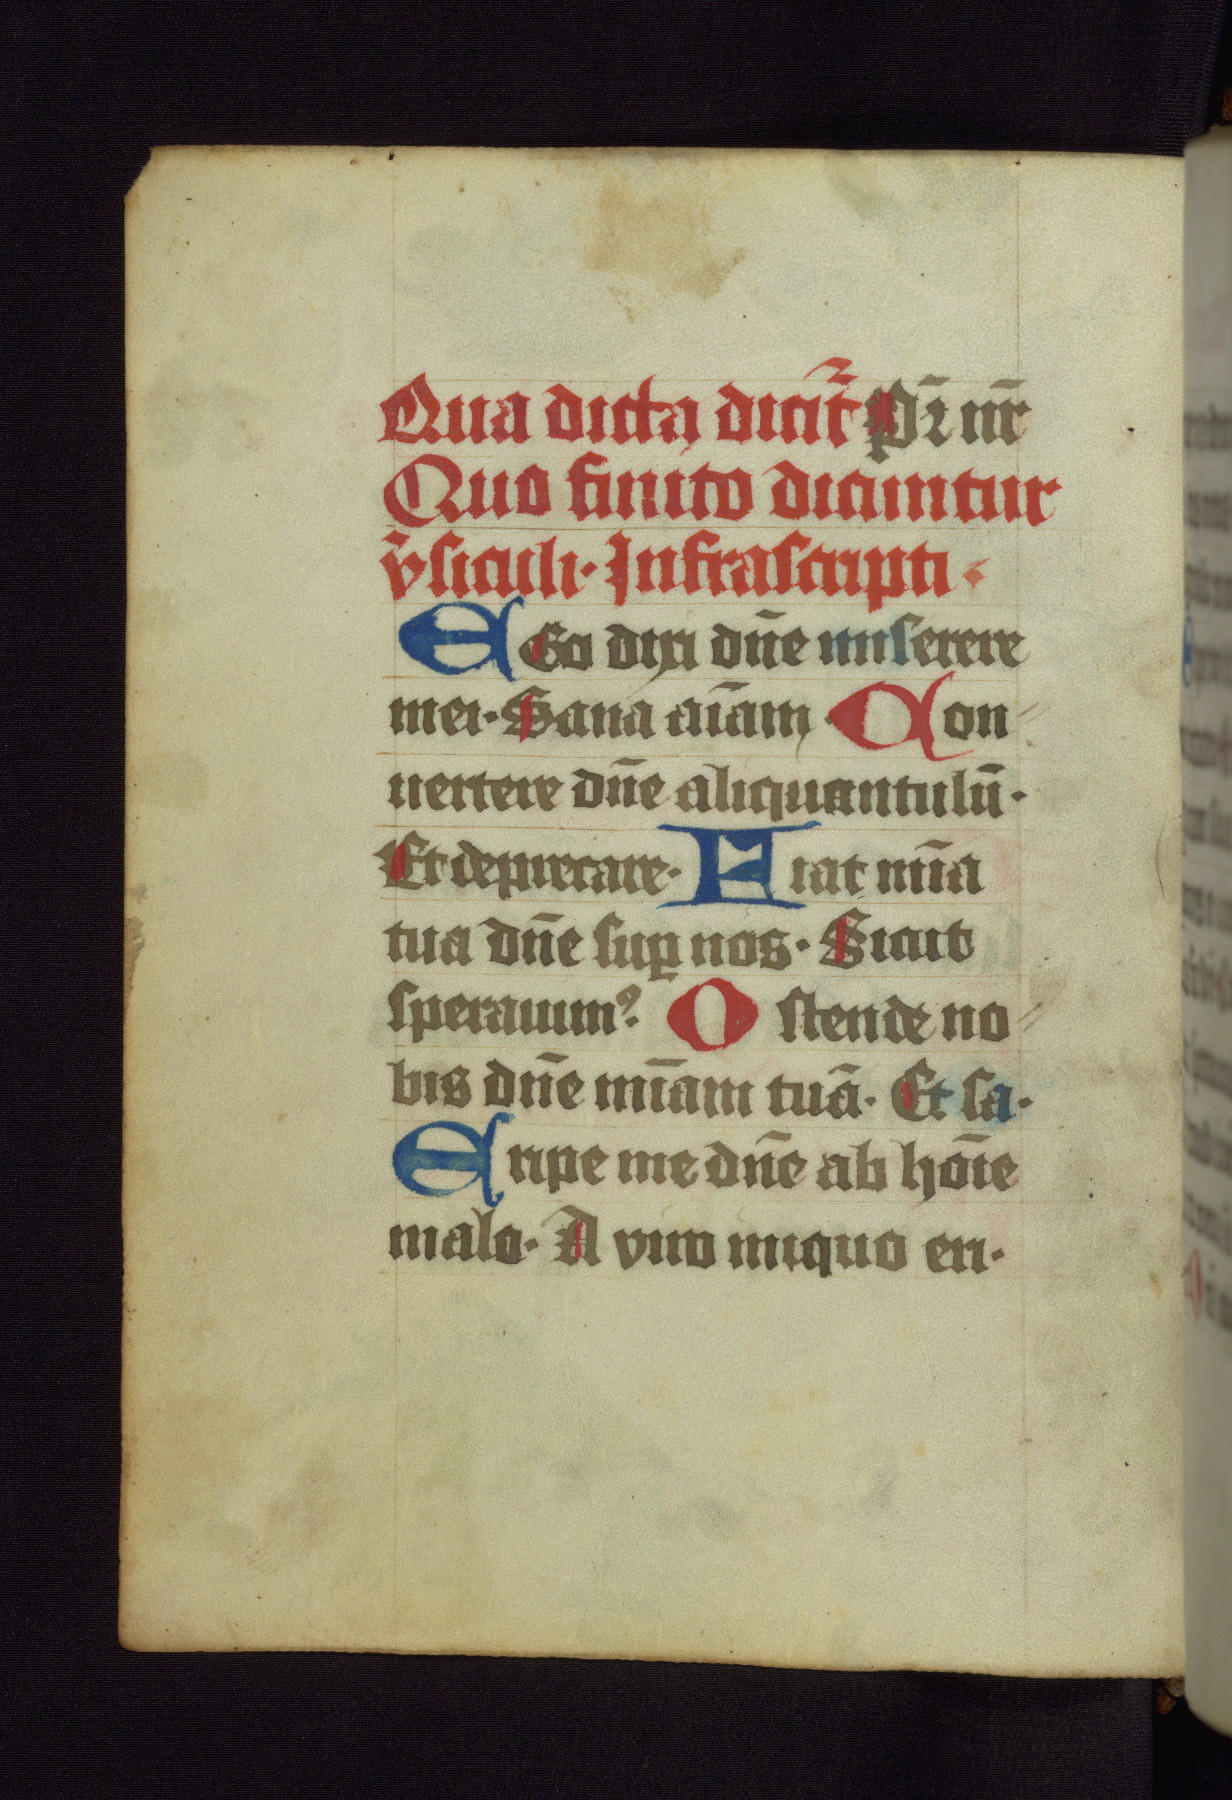 Qua dicta dicit᷑ P̄r nr̄
Quo finito dicuntur
v̄siculi· Infrascripti
EGo dixi dn̄e miserere
mei· Sana aīam· Con
uertere dn̄e aliquantulū·
Et deprecare· Fiat mīa
tua dn̄e suꝑ nos· Sicut
sperauimꝰ· Ostende no
bis dn̄e mīam tuā· Et sa·
Eripe me dn̄e ab hoīe
malo· A viro iniquo eri·